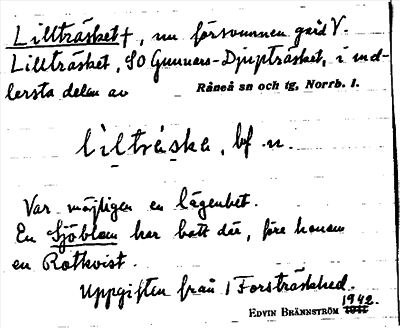 Lillträsket†, nu försvunnen gård V.
Lillträsket, SO Gunnars-Djupträsket, i nod-
lersta delen av Råneå sn och tg, Norrb. l.
lìltráska, bf. n.
Var möjligen en lägenhet.
En Sjöblom har bott där, före honom
en Rotkvist.
Uppgiften från 1 Forsträskhed.
1942.
EDVIN BRÄNNSTRÖM 1941